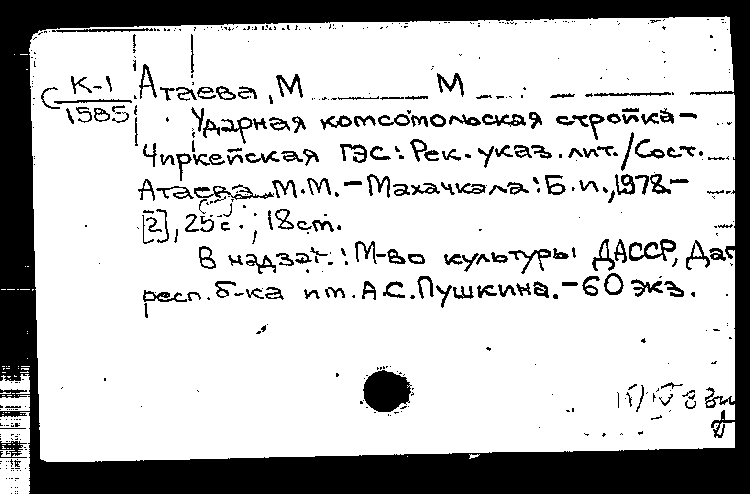 К-1
С 1585
Атаева, М М
Ударная комсомольская стройка-
Чиркейская ГЭС: Рек. указ. лит./Сост.
Атаева М.М. - Махачкала: Б.и., 1978.-
[2], 25 с.; 18 см.
В надзаг.: М-во культуры ДАССР, Даг
респ. б-ка им. А.С. Пушкина. - 60 экз.